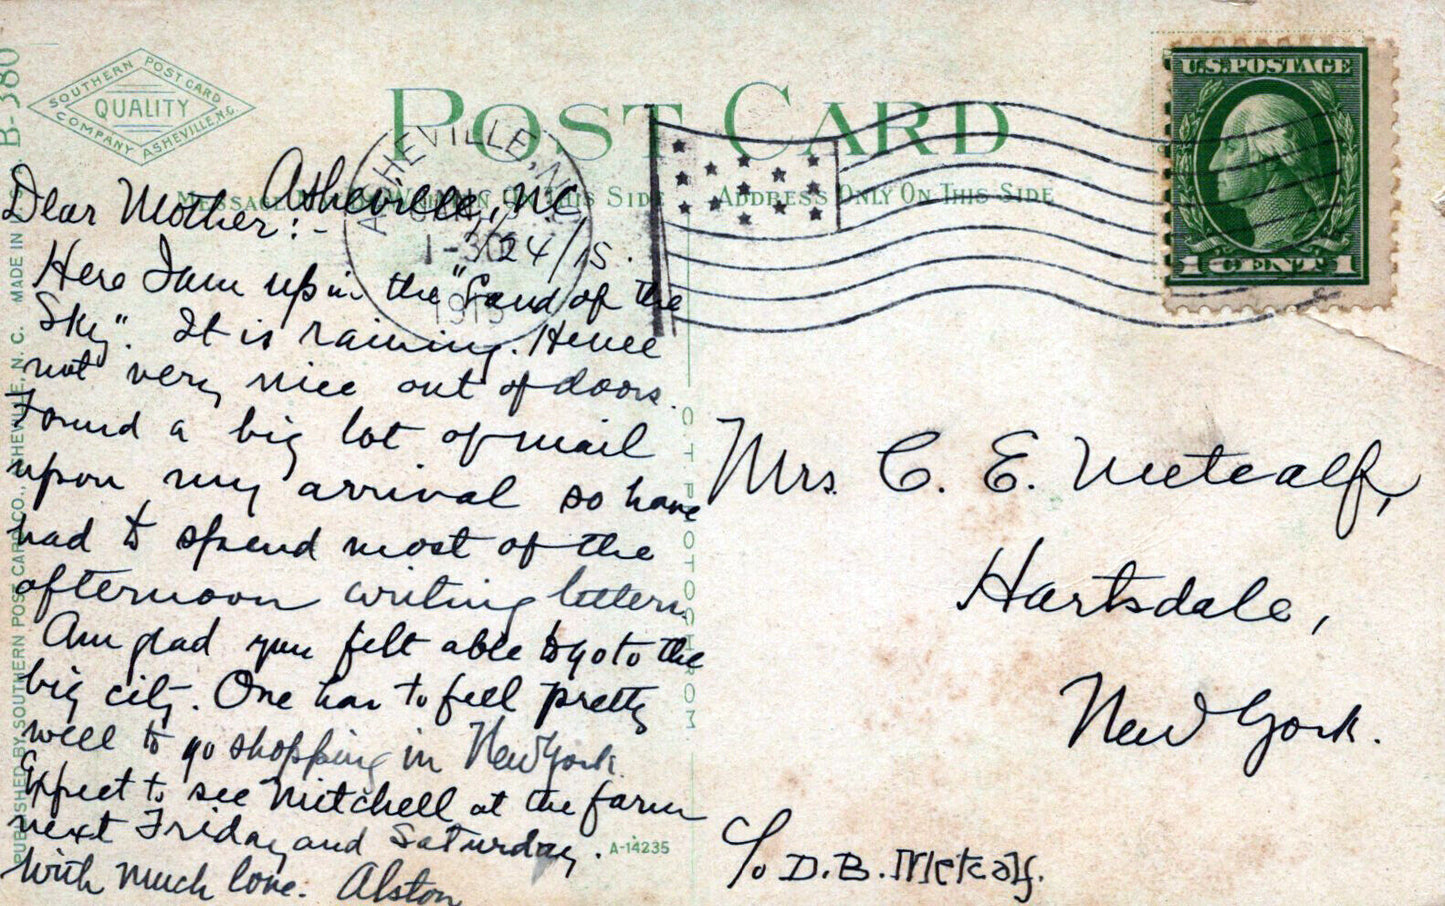 B-380
SOUTHERN POST CARD
QUALITY
COMPANY ASHEVILLE, N.C.
POST CARD
U.S. POSTAGE
1 CENT 1
ASHEVILLE, N.C.
1-30
1915
Message May Be Written On This Side
Address Only On This Side
Asheville, NC,
1/24/15.
Dear Mother:-
Here I am up in the "Land of the
Sky". It is raining. Hence
not very nice out of doors.
Found a big lot of mail
upon my arrival so have
had to spend most of the
afternoon writing letters.
Am glad you felt able to go to the
big city. One has to feel pretty
well to go shopping in New York.
Expect to see Mitchell at the farm
next Friday and Saturday.
With much love. Alston
Mrs. C. E. Metcalf,
Hartsdale,
New York.
c/o D. B. Metcalf.
A-14235
C. T. PHOTOCHROM
PUBLISHED BY SOUTHERN POST CARD CO., ASHEVILLE, N. C. MADE IN